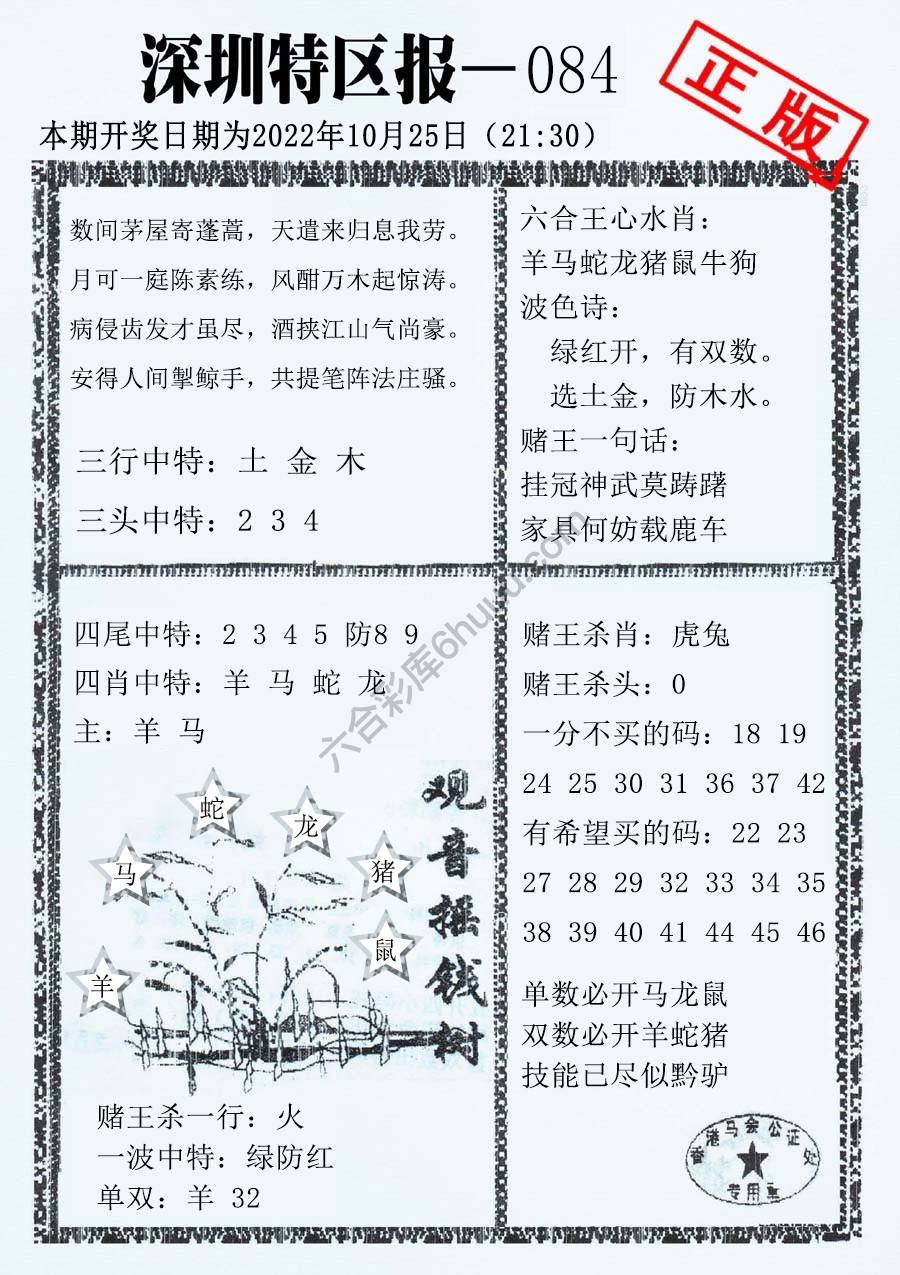 深圳特区报—084
正版
本期开奖日期为2022年10月25日（21:30）
数间茅屋寄蓬蒿，天遣来归息我劳。
月可一庭陈素练，风酣万木起惊涛。
病侵齿发才虽尽，酒挟江山气尚豪。
安得人间掣鲸手，共提笔阵法庄骚。
三行中特：土 金 木
三头中特：2 3 4
六合王心水肖：
羊马蛇龙猪鼠牛狗
波色诗：
绿红开，有双数。
选土金，防木水。
赌王一句话：
挂冠神武莫踌躇
家具何妨载鹿车
四尾中特：2 3 4 5 防8 9
四肖中特：羊 马 蛇 龙
主：羊 马
蛇
龙
马
猪
鼠
羊
观音摇钱树
赌王杀一行：火
一波中特：绿防红
单双：羊 32
赌王杀肖：虎兔
赌王杀头：0
一分不买的码：18 19
24 25 30 31 36 37 42
有希望买的码：22 23
27 28 29 32 33 34 35
38 39 40 41 44 45 46
单数必开马龙鼠
双数必开羊蛇猪
技能已尽似黔驴
香港马会公证处
专用章
六合彩库6huuu.com